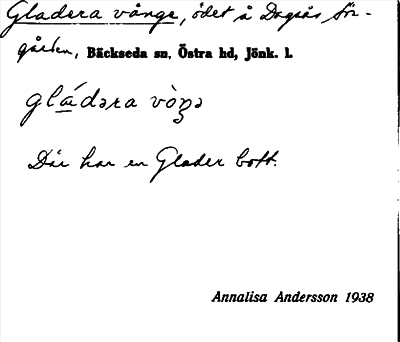 Gladera vånge, ödet å Dagsås Sör-
gården, Bäckseda sn, Östra hd, Jönk. l.
gládəra vòŋə
Där har en Glader bott.
Annalisa Andersson 1938